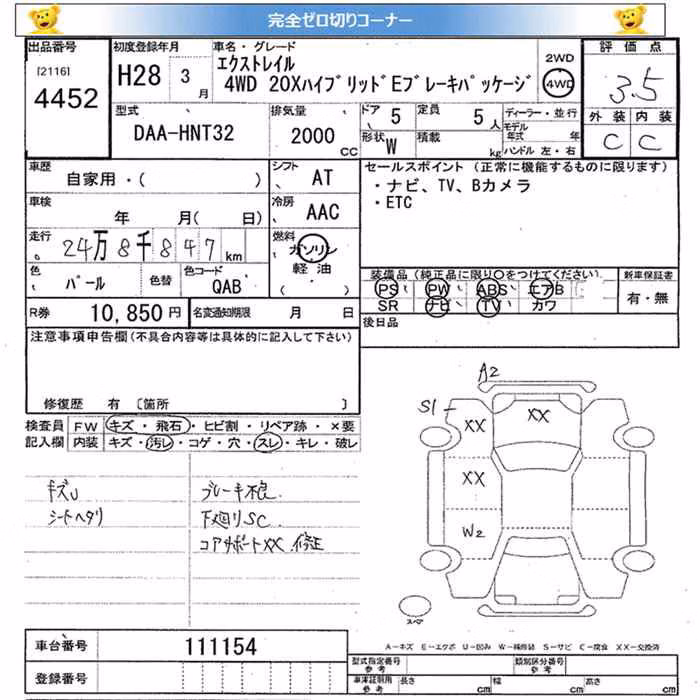 完全ゼロ切りコーナー
出品番号
[2116]
4452
初度登録年月
H28 3月
車名・グレード
エクストレイル
4WD 20XハイブリッドEブレーキパッケージ
2WD
4WD
評価点
3.5
外装 内装
C C
型式
DAA-HNT32
排気量
2000
CC
ドア
5
定員
5人
形状
W
積載
kg
ディーラー・並行
モデル年式 年
ハンドル 左・右
車歴
自家用・( )
シフト
AT
車検
年 月( 日)
冷房
AAC
走行
24万8千847km
燃料
ガソリン
軽油
( )
色
パール
色替
色コード
QAB
R券
10,850円
名変通知期限
月 日
セールスポイント (正常に機能するものに限ります)
・ナビ、TV、Bカメラ
・ETC
装備品(純正品に限り〇をつけてください)
PS PW ABS エアB
SR ナビ TV カワ
新車保証書
有・無
後日品
注意事項申告欄(不具合内容等は具体的に記入して下さい)
修復歴 有 〔箇所 〕
検査員記入欄
FW キズ・飛石・ヒビ割・リペア跡・×要
内装 キズ・汚レ・コゲ・穴・スレ・キレ・破レ
キズU
シートヘタリ
ブレーキ不良
下廻りSC
コアサポートXX 修正
A2
S1
XX
XX
XX
W2
スペア
A−キズ E−エクボ U−凹み W−補修跡 S−サビ C−腐食 XX−交換済
車台番号
111154
登録番号
型式指定番号
参考
類別区分番号
参考
車庫証明用
参考
長さ cm
幅 cm
高さ cm